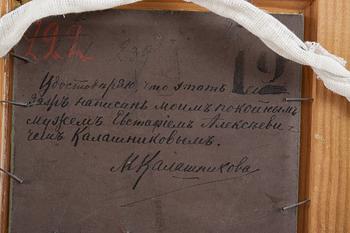 292
12
Удостовѣряю, что этотъ
этюдъ написанъ моимъ покойнымъ
мужемъ Евстафіемъ Алексѣеви-
чемъ Калашниковымъ.
М Калашникова